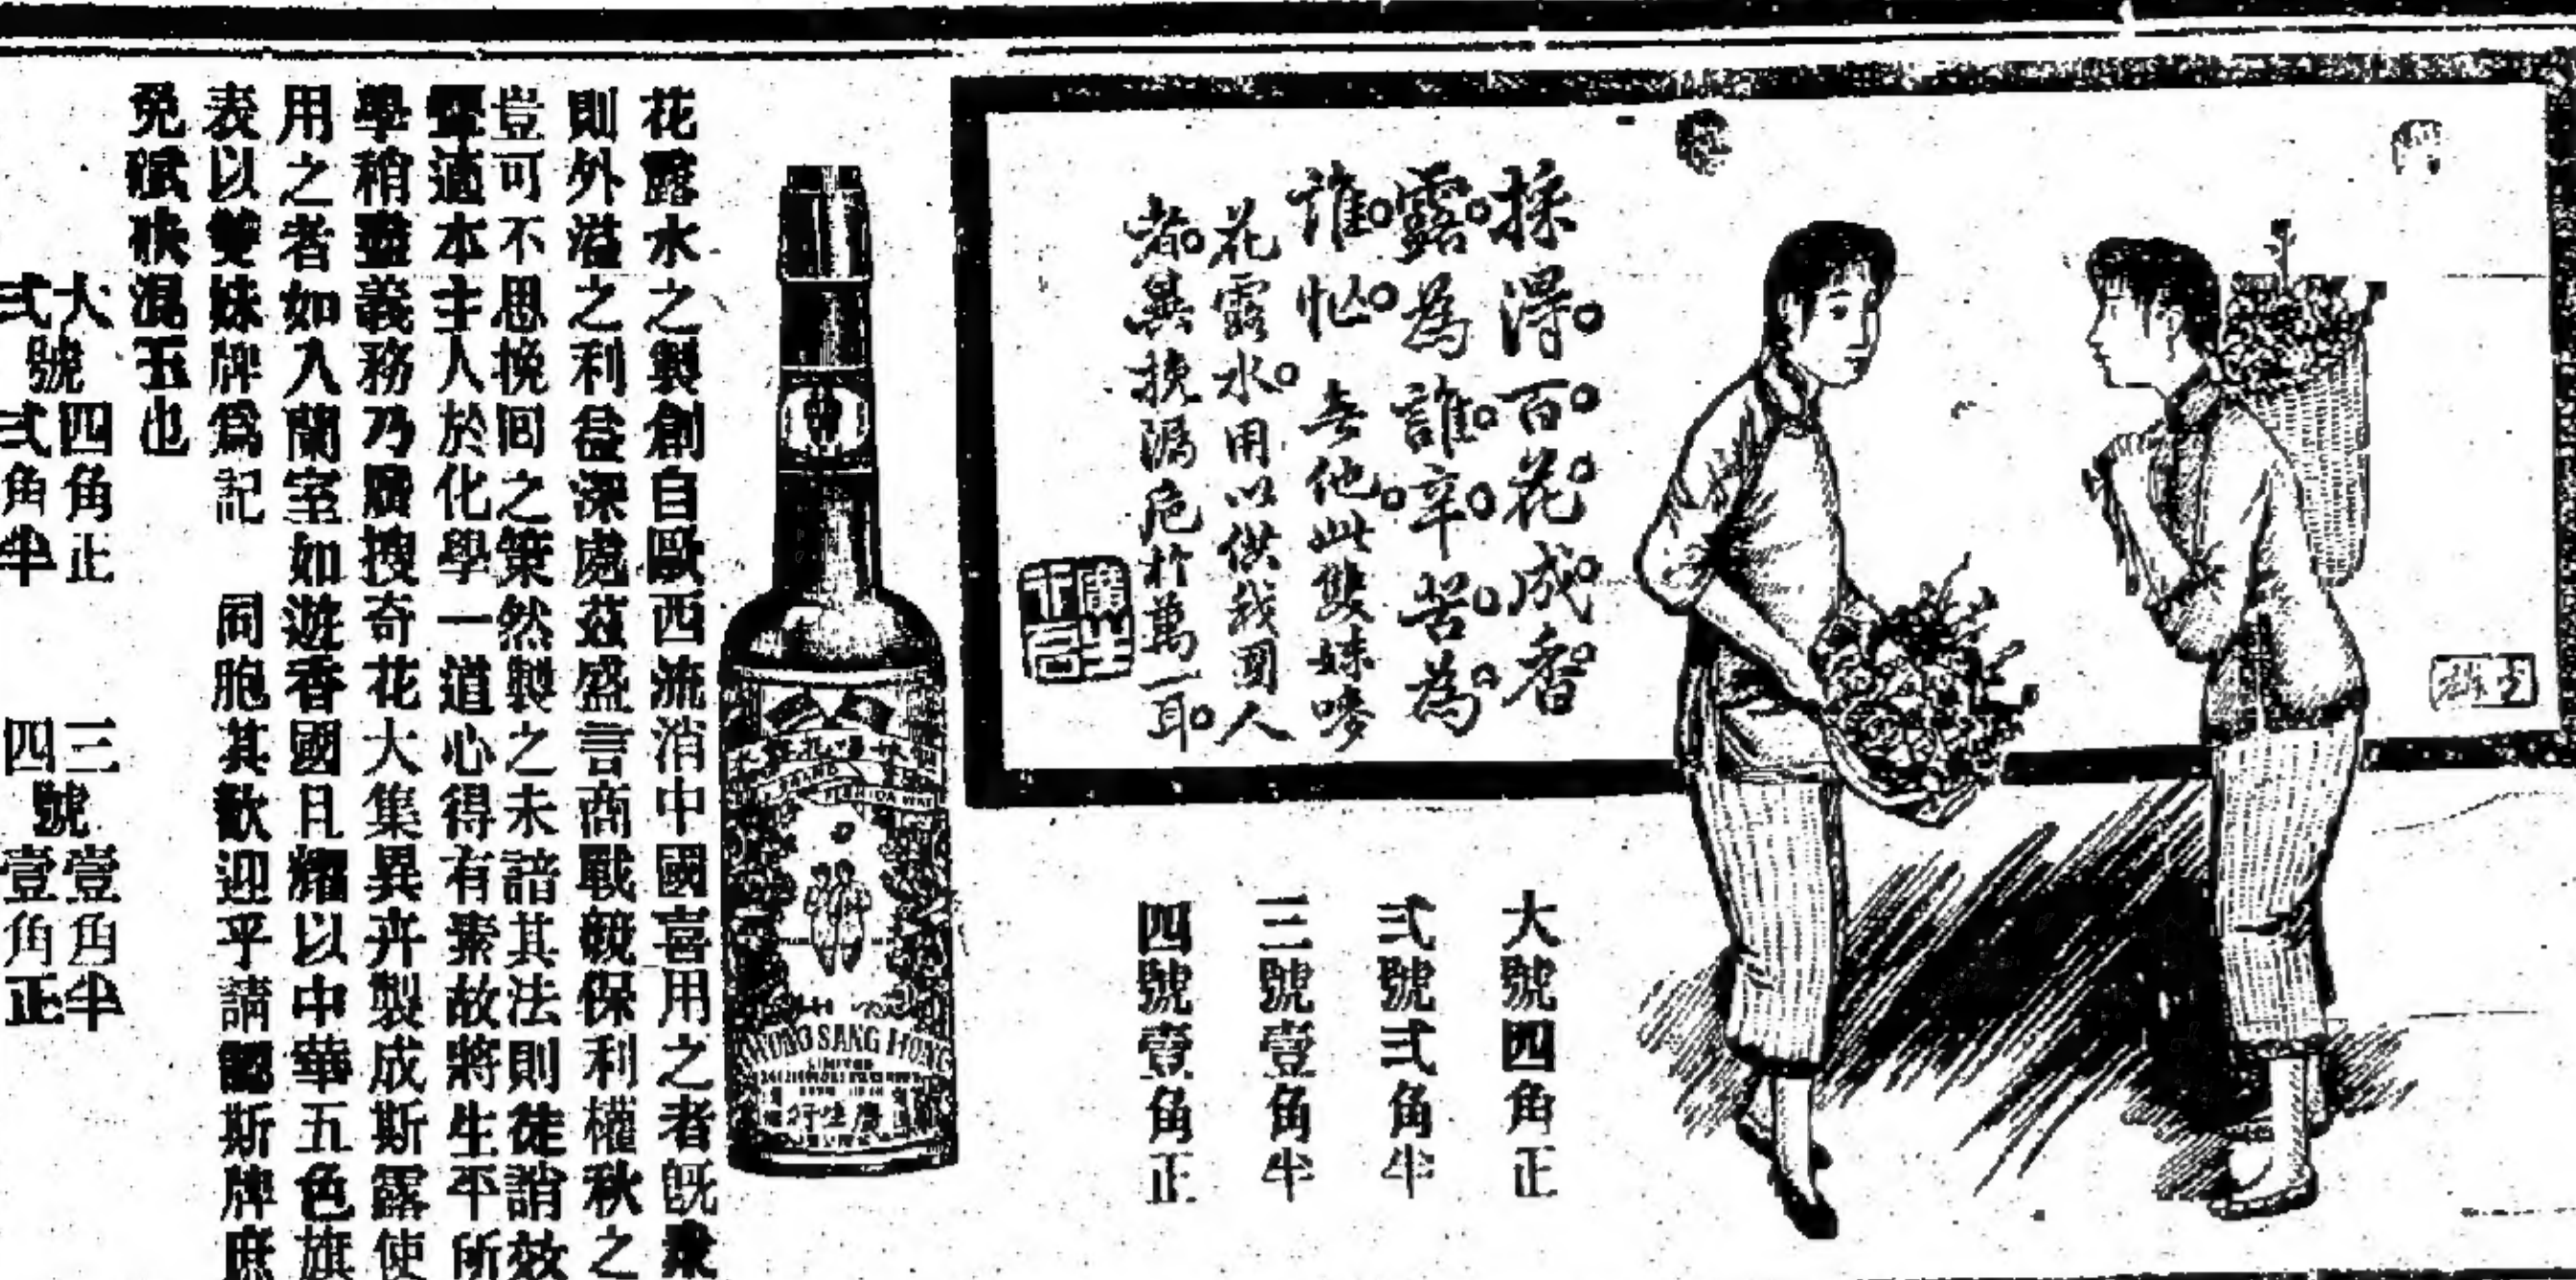 採得百花成香
露為誰辛苦為
誰忙 無他此雙妹嘜
花露水用以供我國人
者冀挽漏巵於萬一耳
廣生
大號四角正
弍號弍角半
三號壹角半
四號壹角正
SANG HONG
LIMITED
廣生行
花露水之製創自歐西流消中國喜用之者旣衆
則外溢之利益深處茲盛言商戰競保利權秋之
豈可不思挽回之策然製之未諳其法則徒誚效
顰適本主人於化學一道心得有素故將生平所
學稍盡義務乃廣搜奇花大集異卉製成斯露使
用之者如入蘭室如遊香國且耀以中華五色旗
表以雙妹牌爲記 同胞其歡迎乎請認斯牌庶
免碔砆混玉也
大號四角正 三號壹角半
弍號弍角半 四號壹角正